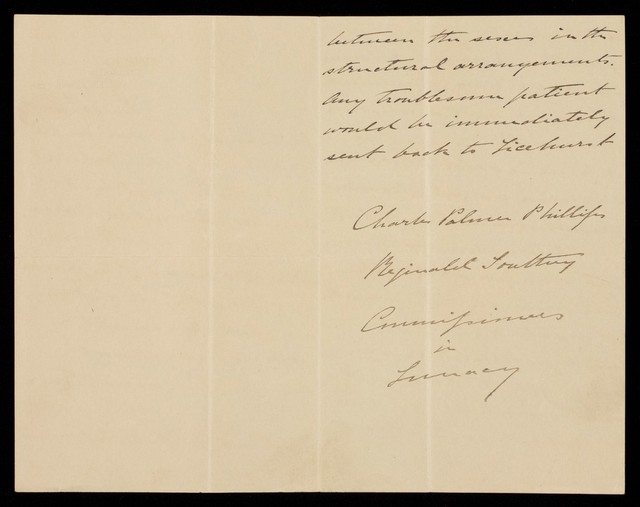 between the sexes in the
structural arrangements.
Any troublesome patient
would be immediately
sent back to Ticehurst
Charles Palmer Phillips
Reginald Southey
Commissioners
in
Lunacy